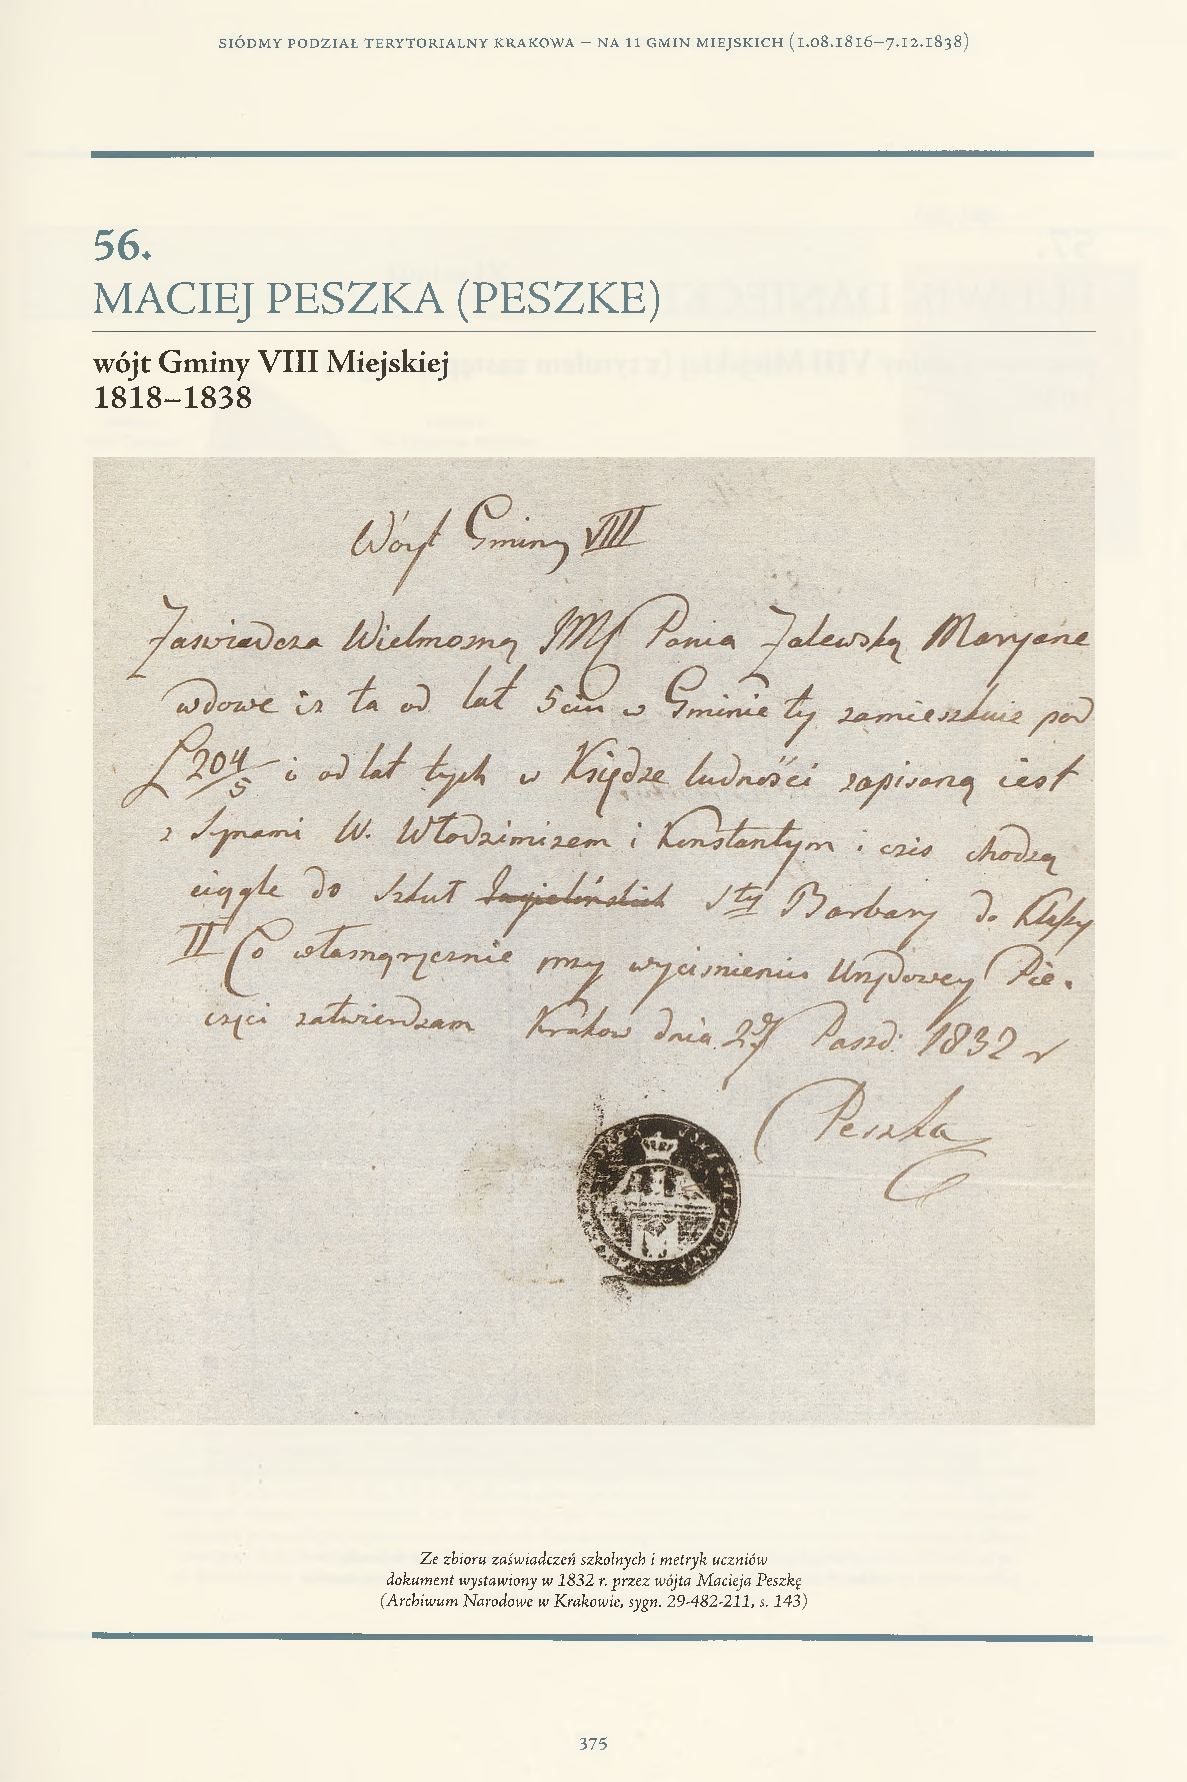 SIÓDMY PODZIAŁ TERYTORIALNY KRAKOWA – NA 11 GMIN MIEJSKICH (1.08.1816–7.12.1838)
56.
MACIEJ PESZKA (PESZKE)
wójt Gminy VIII Miejskiej
1818–1838
Wóyt Gminy VIII
Zaswiadcza Wielmozną Pania Zalewską Maryane
wdowe iz ta od lat 5ciu w Gminie ty zamieszkuie pod
L 204/5 i od lat tych w Księdze ludności zapisaną iest
z Synami W. Włodzimirzem i Konstantym i czis chodzą
ciągle do Szkut Jagielińskich Sty Barbary do Klassy
II Co własnoręcznie przy wyciśnieniu Urzędowey Pie-
częci zatwierdzam Krakow dnia Pazd: 1832 r
Peszka
Ze zbioru zaświadczeń szkolnych i metryk uczniów
dokument wystawiony w 1832 r. przez wójta Macieja Peszkę
(Archiwum Narodowe w Krakowie, sygn. 29-482-211, s. 143)
375